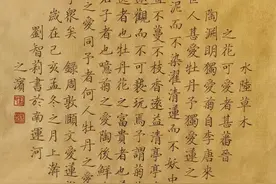 水陸草木
之花可愛者甚蕃晉
陶淵明獨愛菊自李唐來
世人甚愛牡丹予獨愛蓮之
泥而不染濯清漣而不妖中
直不蔓不枝香遠益清亭亭
遠觀而不可褻玩焉予謂菊
逸者也牡丹花之富貴者也
者也噫菊之愛陶後鮮
之愛同予者何人牡丹之愛
乎衆矣 錄周敦頤文愛蓮
歲在己亥孟冬之月上澣
劉智莉書於南運河
之濱